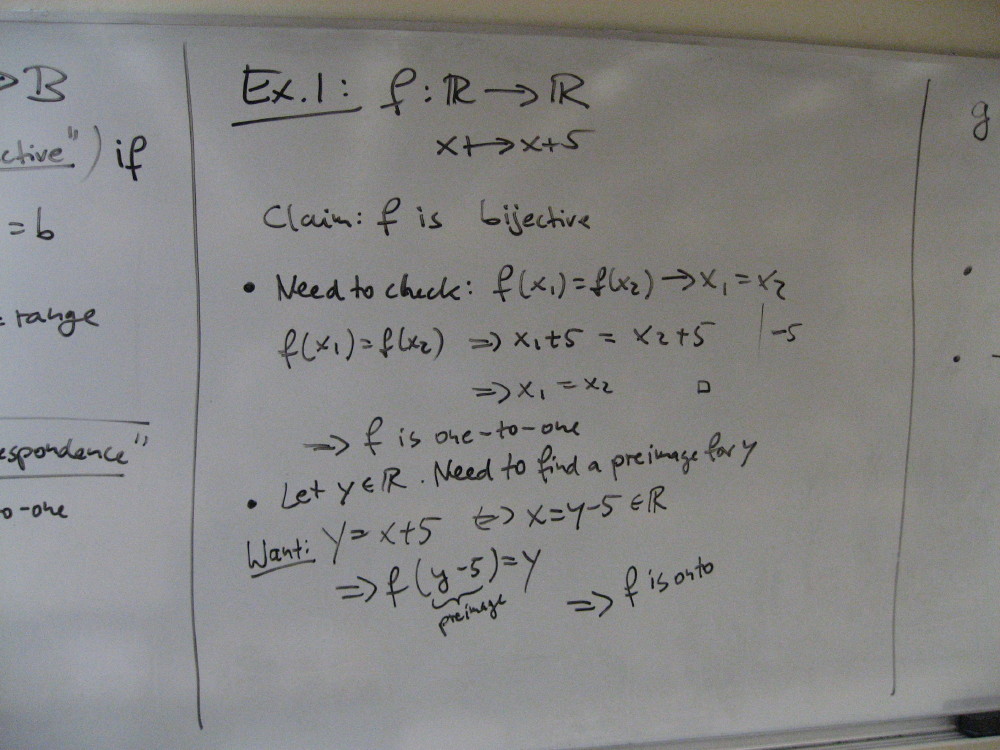 → B
ctive") if
= b
= range
espondence"
o-one
Ex.1: f: ℝ → ℝ
x ↦ x+5
Claim: f is bijective
• Need to check: f(x₁)=f(x₂) → x₁=x₂
f(x₁)=f(x₂) ⇒ x₁+5 = x₂+5 | -5
⇒ x₁ = x₂ □
⇒ f is one-to-one
• Let y∈ℝ. Need to find a preimage for y
Want: y = x+5 ⇔ x=y-5 ∈ℝ
⇒ f(y-5)=y ⇒ f is onto
preimage
g
•
•